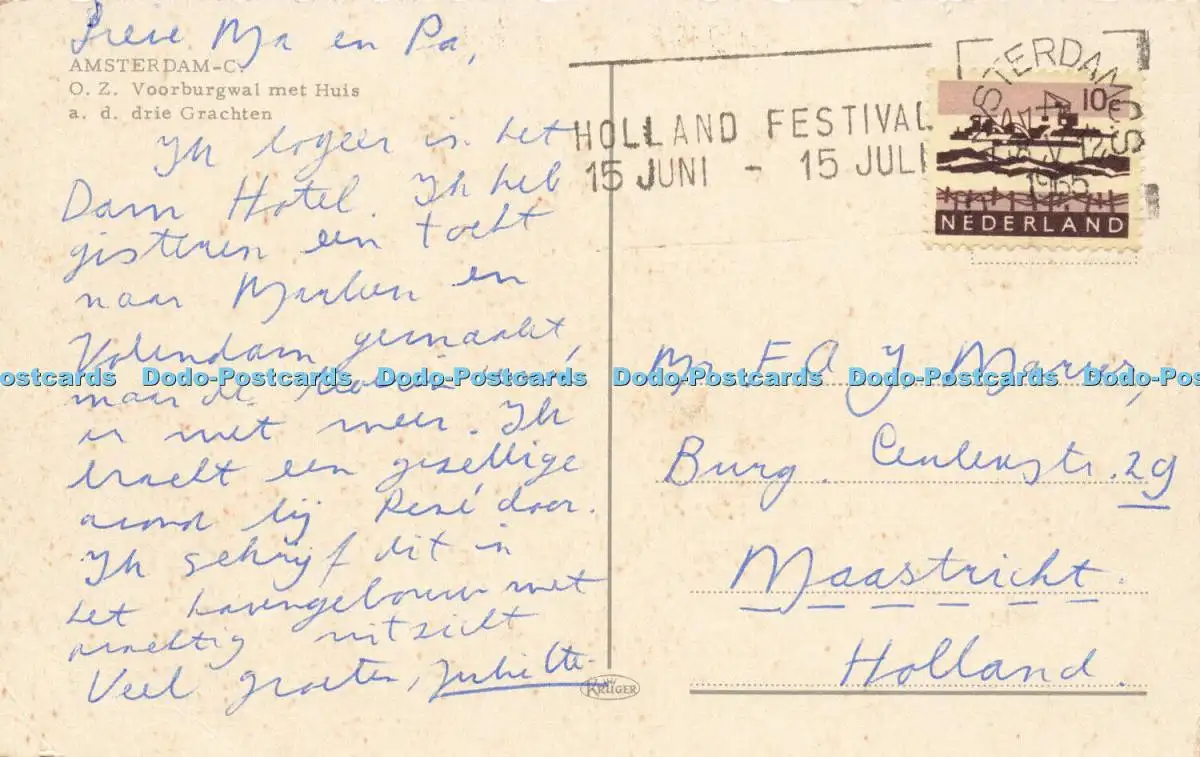 Lieve Ma en Pa,
AMSTERDAM-C.
O. Z. Voorburgwal met Huis
a. d. drie Grachten
Ik logeer in het
Dam Hotel. Ik heb
gisteren een tocht
naar Marken en
Volendam gemaakt,
maar de
er niet meer. Ik
bracht een gezellige
avond bij René door.
Ik schrijf dit in
het havengebouw met
prachtig uitzicht
Veel groeten, Juliette.
HOLLAND FESTIVAL
15 JUNI - 15 JULI
AMSTERDAM-CS
1965
10c
NEDERLAND
Mr F A J
Burg. Ceulenstr. 29
Maastricht.
Holland.
KRÜGER
Postcards Dodo-Postcards Dodo-Postcards Dodo-Postcards Dodo-Postcards Dodo-Pos